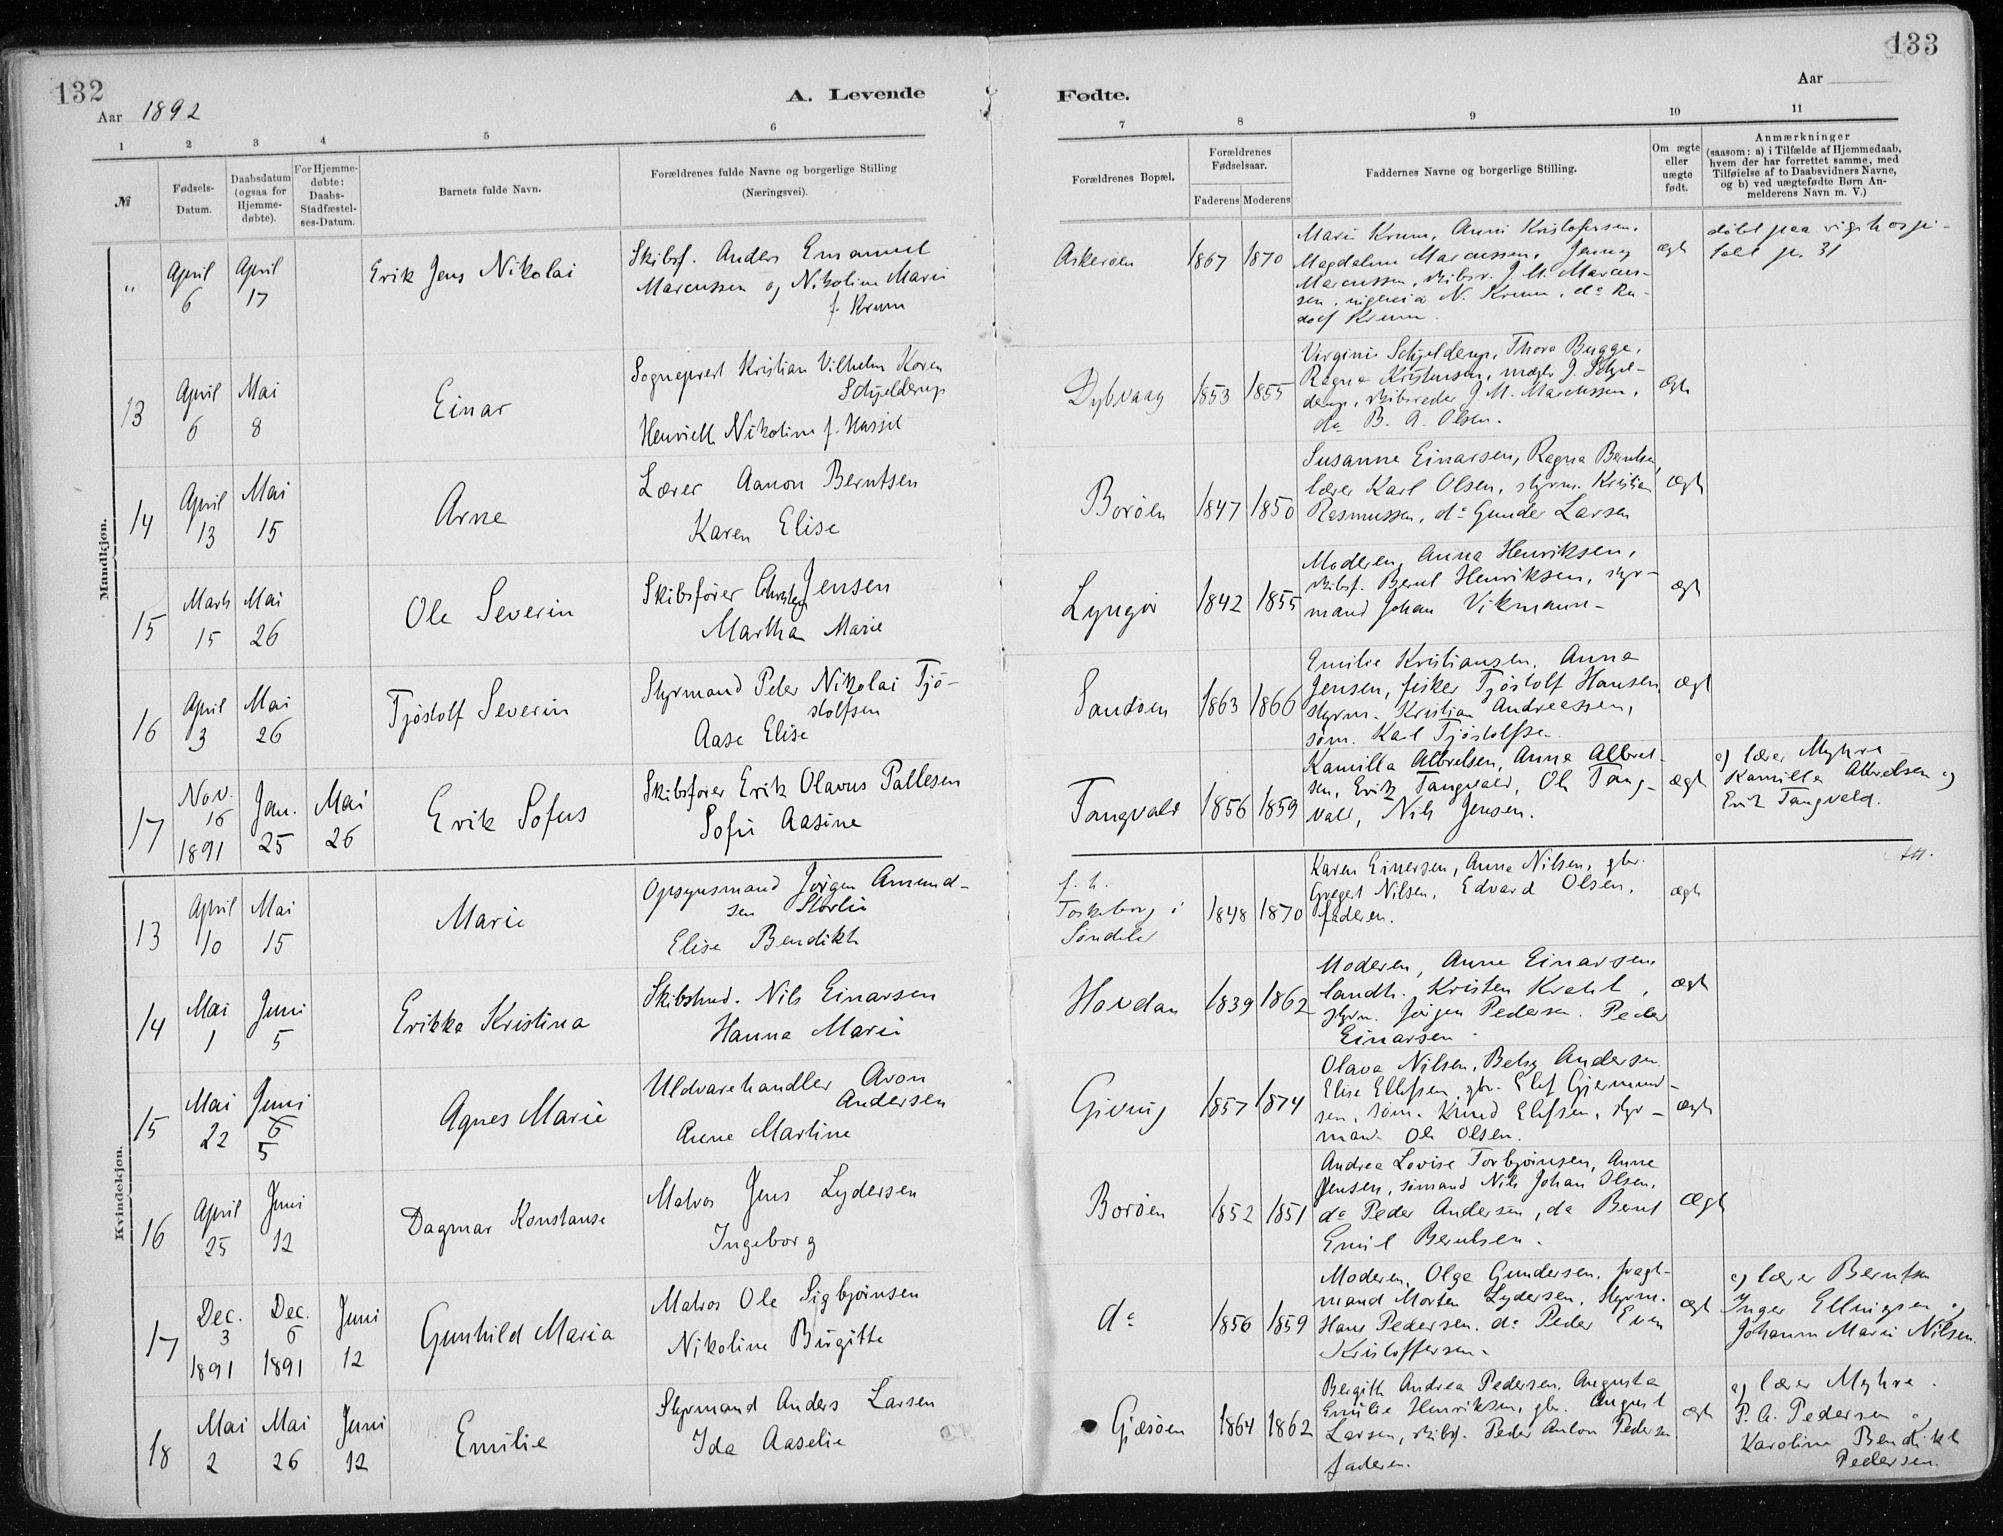 132
Aar 1892
A. Levende
1
2
3
4
5
6
№
Fødsels-
Datum.
Daabsdatum
(ogsaa for
Hjemme-
døbte).
For Hjemme-
døbte:
Daabs-
Stadfæstel-
ses-Datum.
Barnets fulde Navn.
Forældrenes fulde Navne og borgerlige Stilling
(Næringsvei).
Mandkjøn.
"
April
6
April
17
Erik Jens Nikolai
Skibsf. Anders Emanuel
Marcussen og Nikoline Marie
f. Krum
13
April
6
Mai
8
Einar
Sogneprest Kristian Vilhelm Koren
Schjelderup
Henriette Nikoline f. Hassel
14
April
13
Mai
15
Arne
Lærer Aanon Berntsen
Karen Elise
15
Marts
15
Mai
26
Ole Severin
Skibsfører Christen Jensen
Martha Marie
16
April
3
Mai
26
Tjöstolf Severin
Styrmand Peder Nikolai Tjö-
stolfsen
Aase Elise
17
Nov.
16
1891
Jan.
25
Mai
26
Erik Sofus
Skibsfører Erik Olavus Pallesen
Sofie Aasine
Kvindekjøn.
13
April
10
Mai
15
Marie
Opsynsmand Jørgen Amund-
sen Storlii
Elise Bendikte
14
Mai
1
Juni
5
Erikka Kristina
Skibstmd. Nils Einarsen
Hanna Marie
15
Mai
22
Juni
6
5
Agnes Marie
Uldvarehandler Avon
Andersen
Anne Martine
16
April
25
Juni
12
Dagmar Konstanse
Matros Jens Lydersen
Ingeborg
17
Dec.
3
1891
Dec.
6
1891
Juni
12
Gunhild Maria
Matros Ole Sigbjørnsen
Nikoline Birgitte
18
Mai
2
Mai
26
Juni
12
Emilie
Styrmand Anders Larsen
Ida Aaselie
133
Aar
Fødte.
7
8
9
10
11
Forældrenes Bopæl.
Forældrenes
Fødselsaar.
Faderens
Moderens
Faddernes Navne og borgerlige Stilling.
Om ægte
eller
uægte
født.
Anmærkninger
(saasom: a) i Tilfælde af Hjemmedaab,
hvem der har forrettet samme, med
Tilføielse af to Daabsvidners Navne,
og b) ved uægtefødte Børn An-
melderens Navn m. V.)
Askerøen
1867
1870
Marie Krum, Anni Kristofersen,
Magdaline Marcussen, Jenny
Marcussen, skibsr. J. M. Marcus-
sen, N. Krum, do Ru-
dolf Krum.
ægt
døbt paa rigshospi-
talt
Dybvaag
1853
1855
Virginie Schjelderup, Thora Bugge,
Ragna Kristensen, mægler J. Schjel-
derup, skibsreder J. M. Marcussen,
do B. A. Olsen.
Ægte
Borøen
1847
1850
Susanne Einarsen, Ragna Berntsen,
lærer Karl Olsen, styrm. Kristian
Rasmussen, do Gunder Larsen
ægt
Lyngør
1842
1855
Moderen, Anna Henriksen,
skibsf. Bernt Henriksen, styr-
mand Johan Vikmann
ægt
Sandøen
1863
1866
Emilie Kristiansen, Anna
Jensen, fisker Tjöstolf Hansen,
styrm. Kristian Andreassen,
søm. Karl Tjöstolfsen.
ægt
Tangvald
1856
1859
Kamilla Albretsen, Anna Albret-
sen, Erik Tangvald, Ole Tang-
vald, Nils Jensen.
ægt
a) lærer Myhre
Kamilla Albretsen og
Erik Tangvald.
f. t.
i
Søndeled
1848
1870
Karen Einersen, Anna Nilsen, gbr.
Gregert Nilsen, Edvard Olsen,
faderen.
ægt
Havdan
1839
1862
Moderen, Anne Einarsen,
landh. Kristen Krahl,
styrm. Jörgen Pedersen. Peder
Einarsen
ægt
Giving
1857
1874
Olava Nilsen, Betsy Andersen
Elise Ellefsen, gbr. Elef Gjermund-
sen, søm. Knud Elefsen, styr-
mand Ole Olsen.
ægt
Borøen
1852
1851
Andrea Lovise Torbjørnsen, Anne
Jensen, sømand Nils Johan Olsen,
do Peder Andersen, do Bernt
Emil Berntsen.
Ægt
do
1856
1859
Moderen, Olga Gundersen, fragt-
mand Morten Lydersen, styrm.
Hans Pedersen. do Peder Even
Kristoffersen.
ægt
a) lærer Berntsen
Inger Ellingsen og
Johanne Marie Nilsen.
Gjæsøen
1864
1862
Bergitte Andrea Pedersen, Augusta
Emilie Henriksen, gbr. August
Larsen, skibsf. Peder Anton Pedersen
faderen.
ægt
a) lærer Myhre.
P. A. Pedersen
Karoline Bendikte
Pedersen.